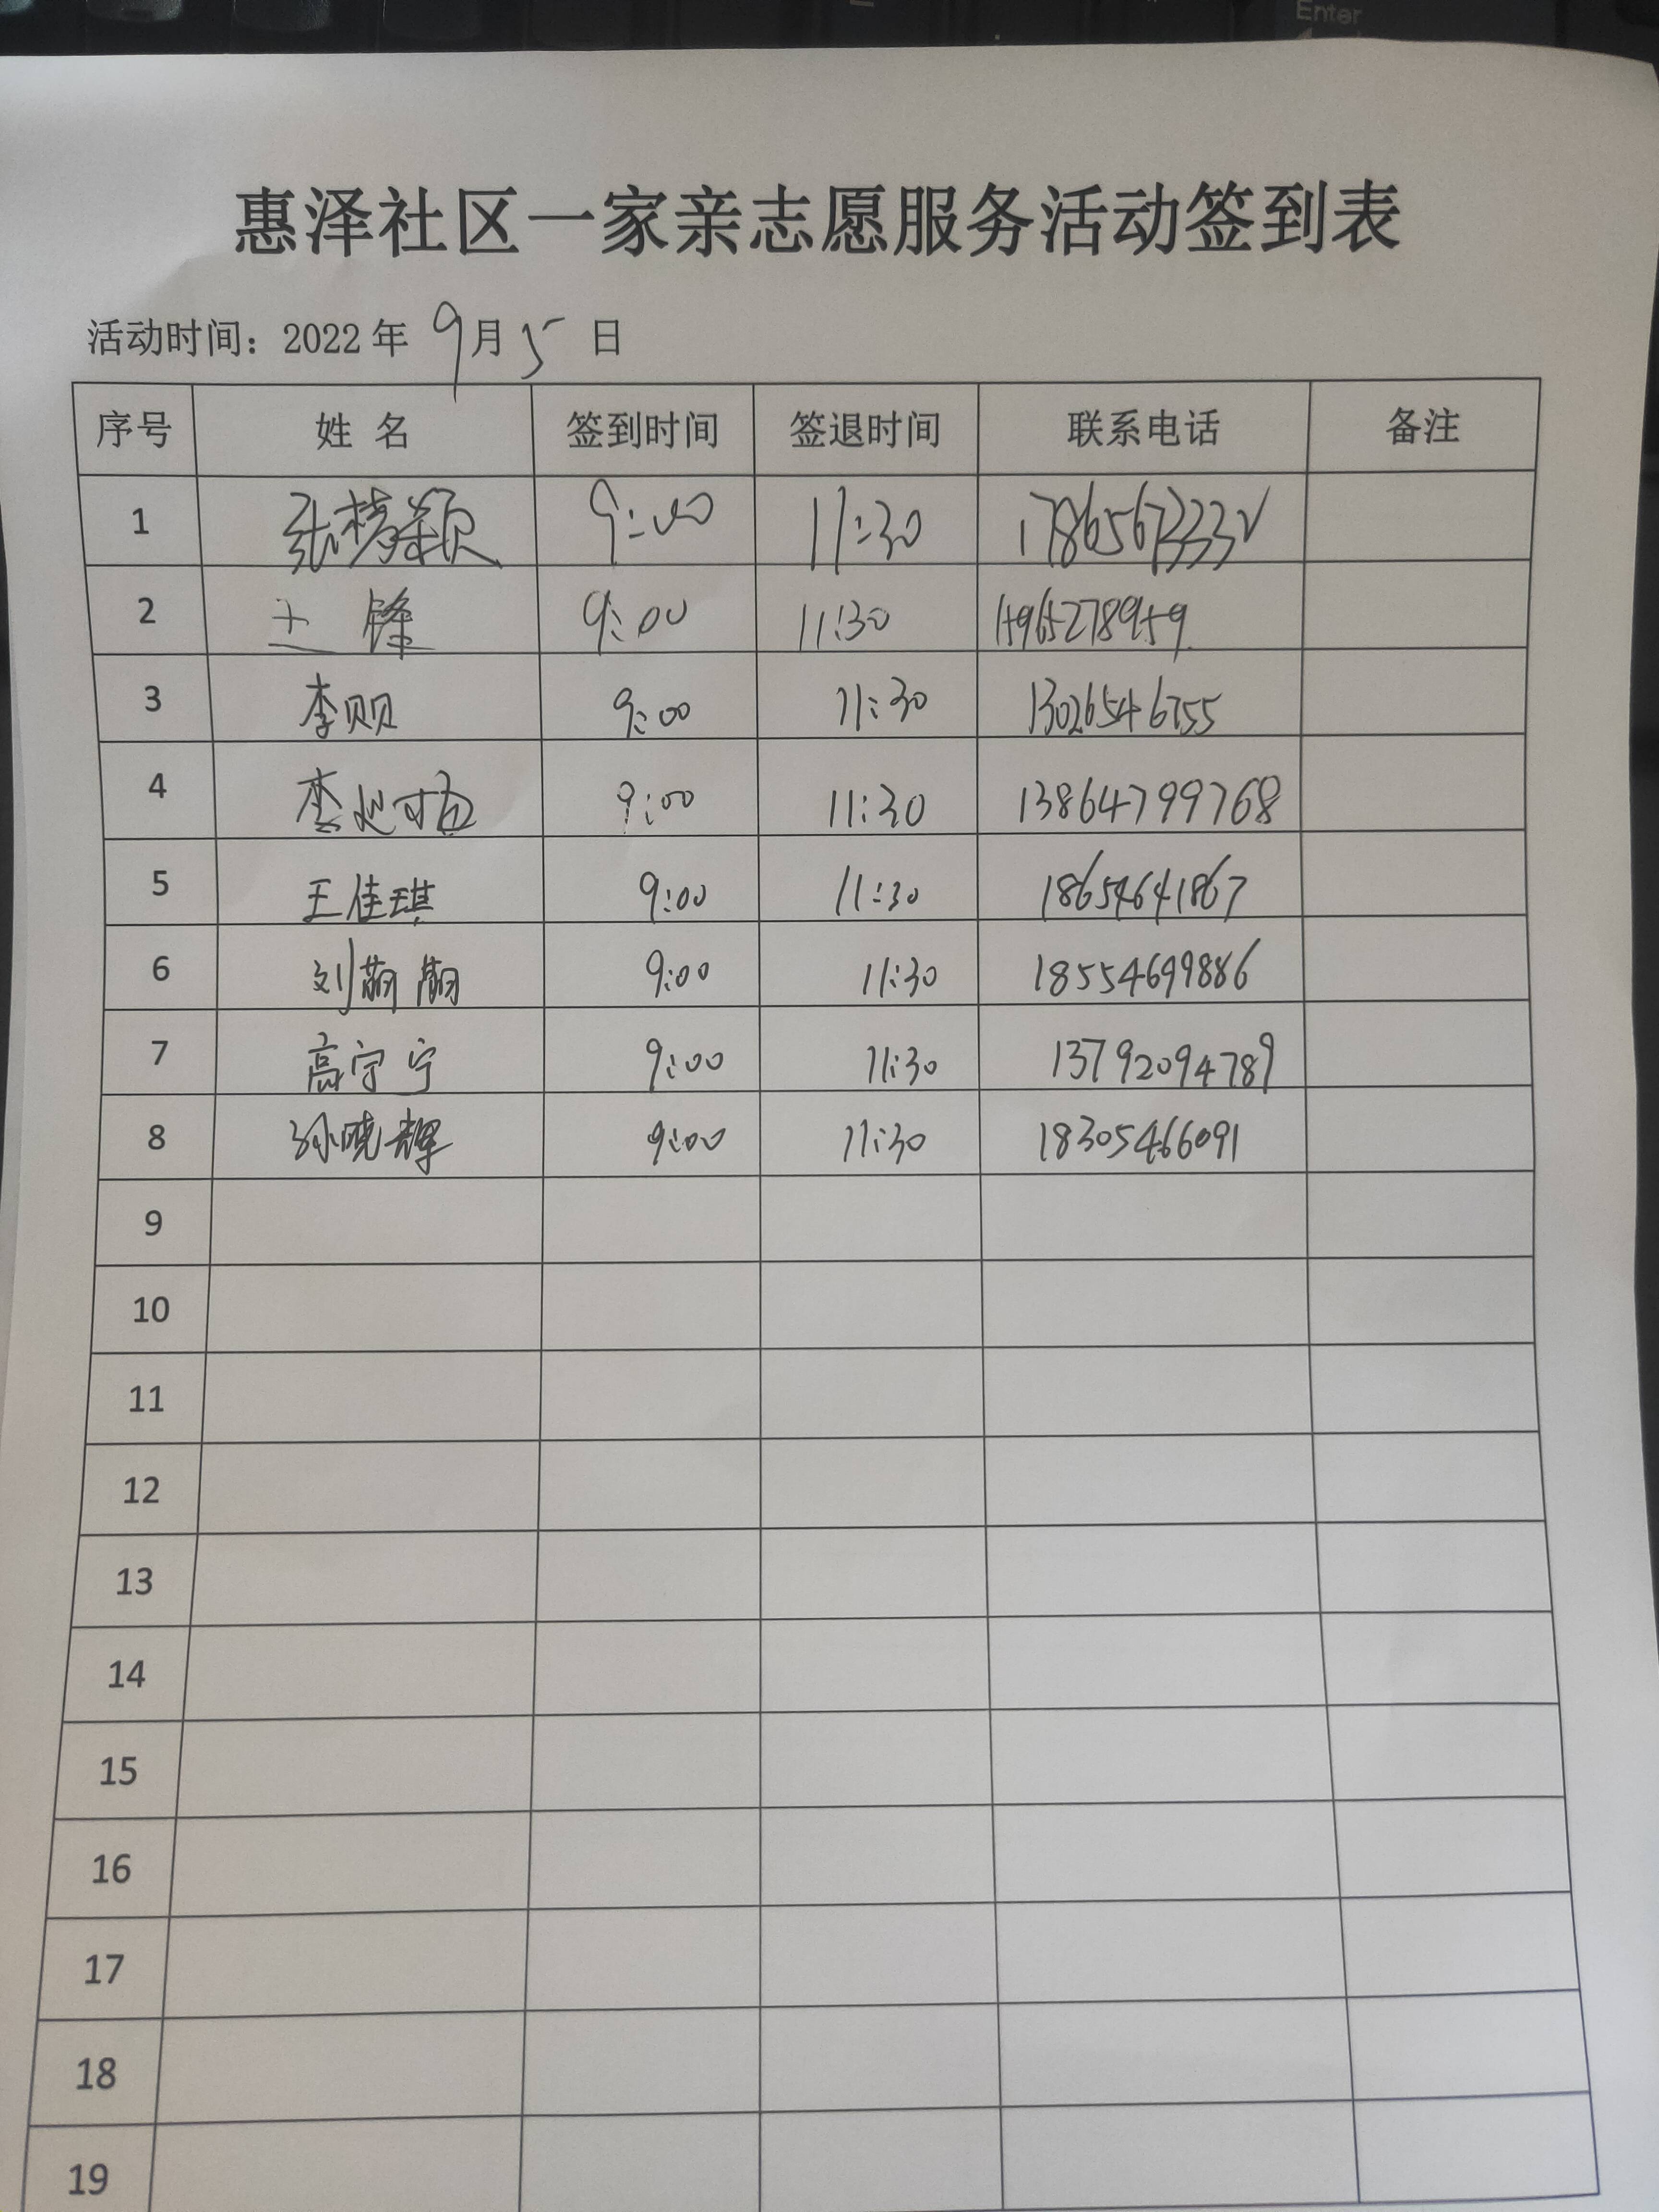 Enter
惠泽社区一家亲志愿服务活动签到表
活动时间：2022年 9月 5 日
序号 姓 名 签到时间 签退时间 联系电话 备注
1 9:00 11:30
2 王 锋 9:00 11:30 15965278959
3 李贝贝 9:00 11:30 13026546755
4 9:00 11:30 13864799768
5 王佳琪 9:00 11:30 18654641867
6 9:00 11:30 18554699886
7 高宁宁 9:00 11:30 13792094789
8 孙晓辉 9:00 11:30 18305466091
9
10
11
12
13
14
15
16
17
18
19